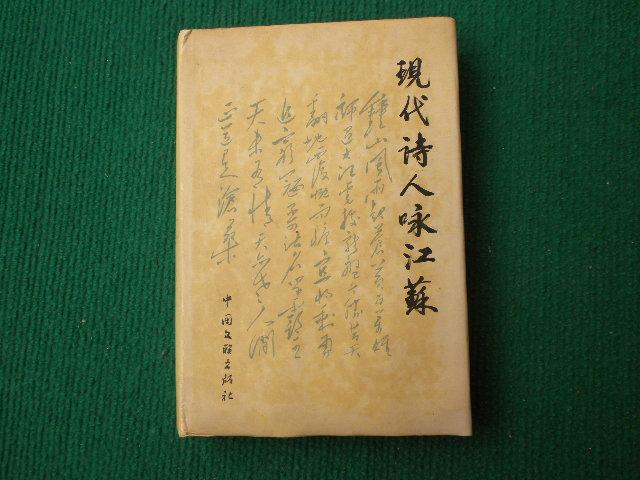 現代詩人咏江蘇
鐘山風雨起蒼黃百萬雄
師過大江虎踞龍盤今勝昔天
翻地覆慨而慷宜將剩勇
追窮寇不可沽名學霸王
天若有情天亦老人間
正道是滄桑
中国文联出版社